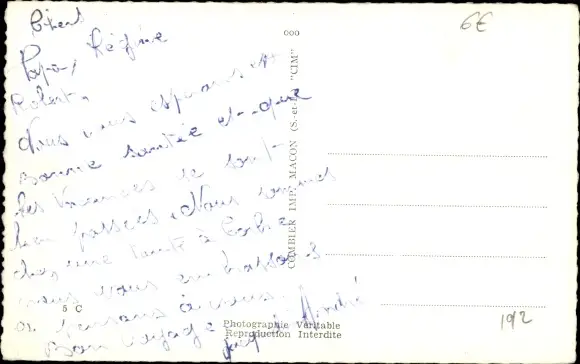 Chers
Papa, Régine
Robert,
Nous vous esperons en
Bonne santée et que
les vacances se sont
bien passées. Nous sommes
chez une tante à
nous vous embrassons
on pensons à vous.
Bon voyage
André
ooo
6€
COMBIER IMP. MACON (S.-et-L.) "CIM"
5 C
Photographie Véritable
Reproduction Interdite
192